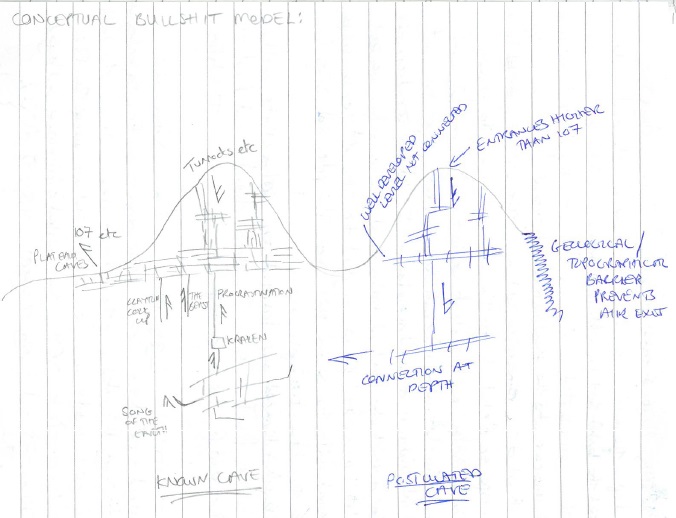 CONCEPTUAL BULLSHIT MODEL:
TUNOCKS etc
107 etc
PLATEAU
CAVES
UP
THE
PROCRASTINATION
KRAKEN
SONG
OF THE
EARTH
KNOWN CAVE
WELL DEVELOPED
LEVEL NOT CONNECTED
ENTRANCES HIGHER
THAN 107
GEOLOGICAL/
TOPOGRAPHICAL
BARRIER
PREVENTS
AIR EXIT
CONNECTION AT
DEPTH
POSTULATED
CAVE